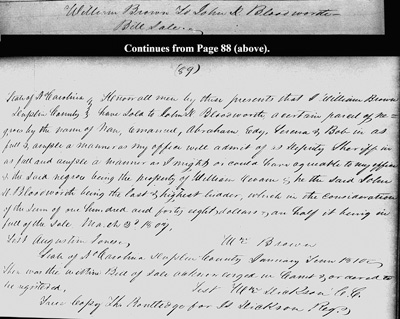 William Brown To John K Bloodworth
Bill Sale
Continues from Page 88 (above).
(89)
State of No Carolina } Know all men by these presents that I William Brown
Duplin County } have sold to John K Bloodworth a certain parcel of ne=
groes by the name of Nan, Emanuel, Abraham Edy, Serena & Bob in as
full & ample a manner as my office will admit of as Deputy Sheriff in
as full and ample a manner as I might or could have agreeable to my office
the said negroes being the property of William & he the said John
K Bloodworth being the last & highest bidder, which in the consideration
of the sum of one hundred and forty eight dollars & an half it being in
full of the Sale March 3d 1809.
Test Augustin Jones Wm Brown
State of No Carolina Duplin County January Term 1810
Then was the within Bill of Sale acknowledged in Court & ordered to
be registered. Test Wm Dickson C.C.
True Copy Tho Routledge for Js Dickson Regr